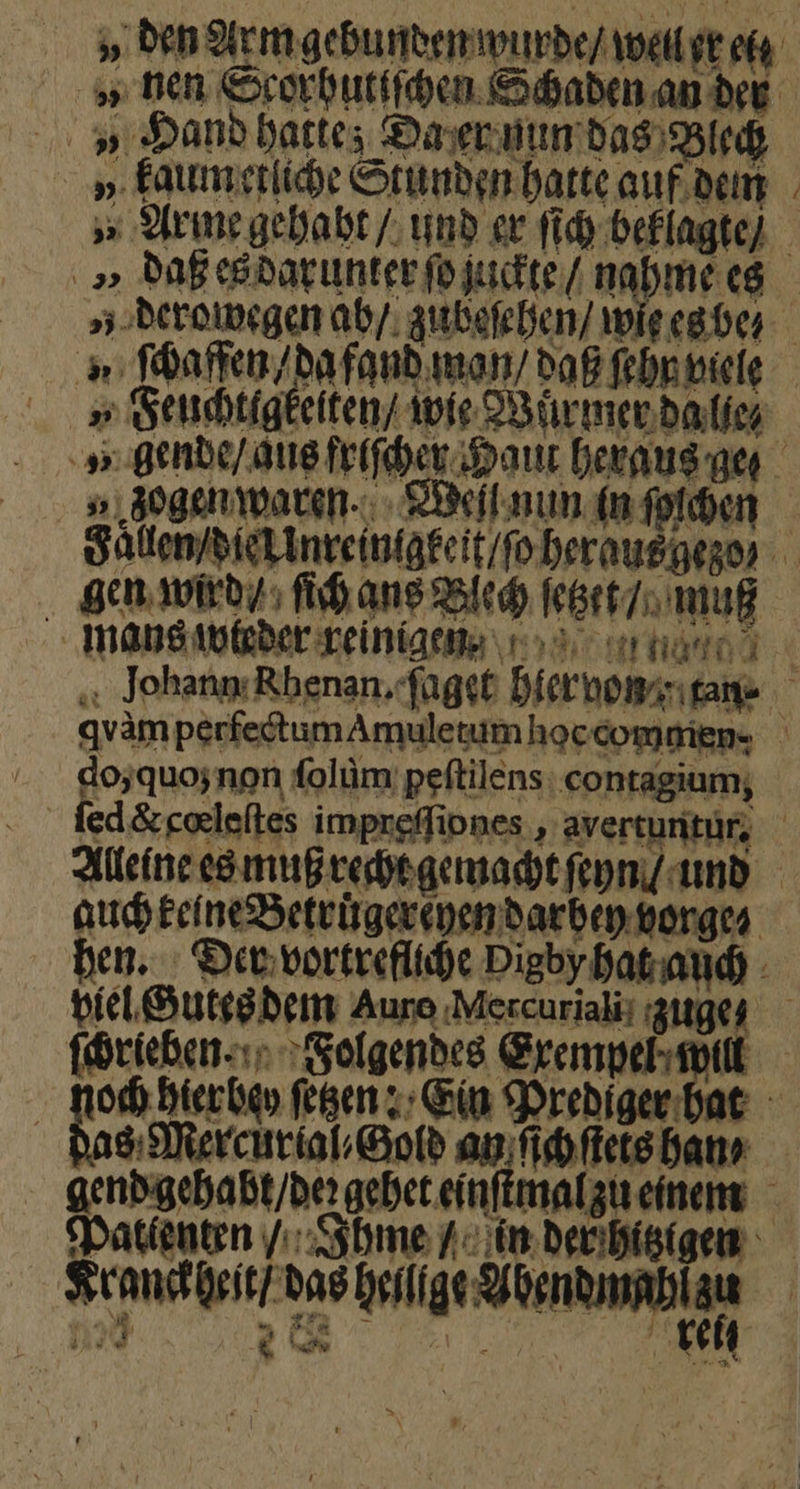 „ den Arm gebunden wurde/ weil er ei⸗
„ nen Scorbutiſchen Schaden an der
„ Hand hatte; Da er nun das Blech
„ kaum etliche Stunden hatte auf dem
„ Arme gehabt / und er ſich beklagte/
„ daß es darunter ſo juckte / nahme es
„ derowegen ab/ zubeſehen/ wie es be⸗
„ ſchaffen /da fand man/ daß ſehr viele
„ Feuchtigkeiten/ wie Würmer da lie⸗
„ gende/ aus friſcher Haut heraus ge⸗
„ zogen waren. Weil nun in ſolchen
Fällen/die Unreinigkeit/ſo herausgezo⸗
gen wird/ ſich ans Blech ſetzet / muß
mans wieder reinigen.
Johann Rhenan. ſaget hiervon: tan-
qvàm perfectum Amuletum hoc commen-
do, quo, non ſolùm peſtilens contagium,
ſed & cœleſtes impreſſiones , avertuntur.
Alleine es muß recht gemacht ſeyn/ und
auch keine Betrügereyen darbey vorge⸗
hen. Der vortrefliche Digby hat auch
viel Gutes dem Auro Mercuriali zuge⸗
ſchrieben. Folgendes Exempel will
noch hierbey ſetzen: Ein Prediger hat
das Mercurial⸗Gold an ſich ſtets han⸗
gend gehabt/der gehet einſtmal zu einem
Patienten / Ihme / in der hitzigen
Kranckheit/ das heilige Abendmahl zu
rei⸗